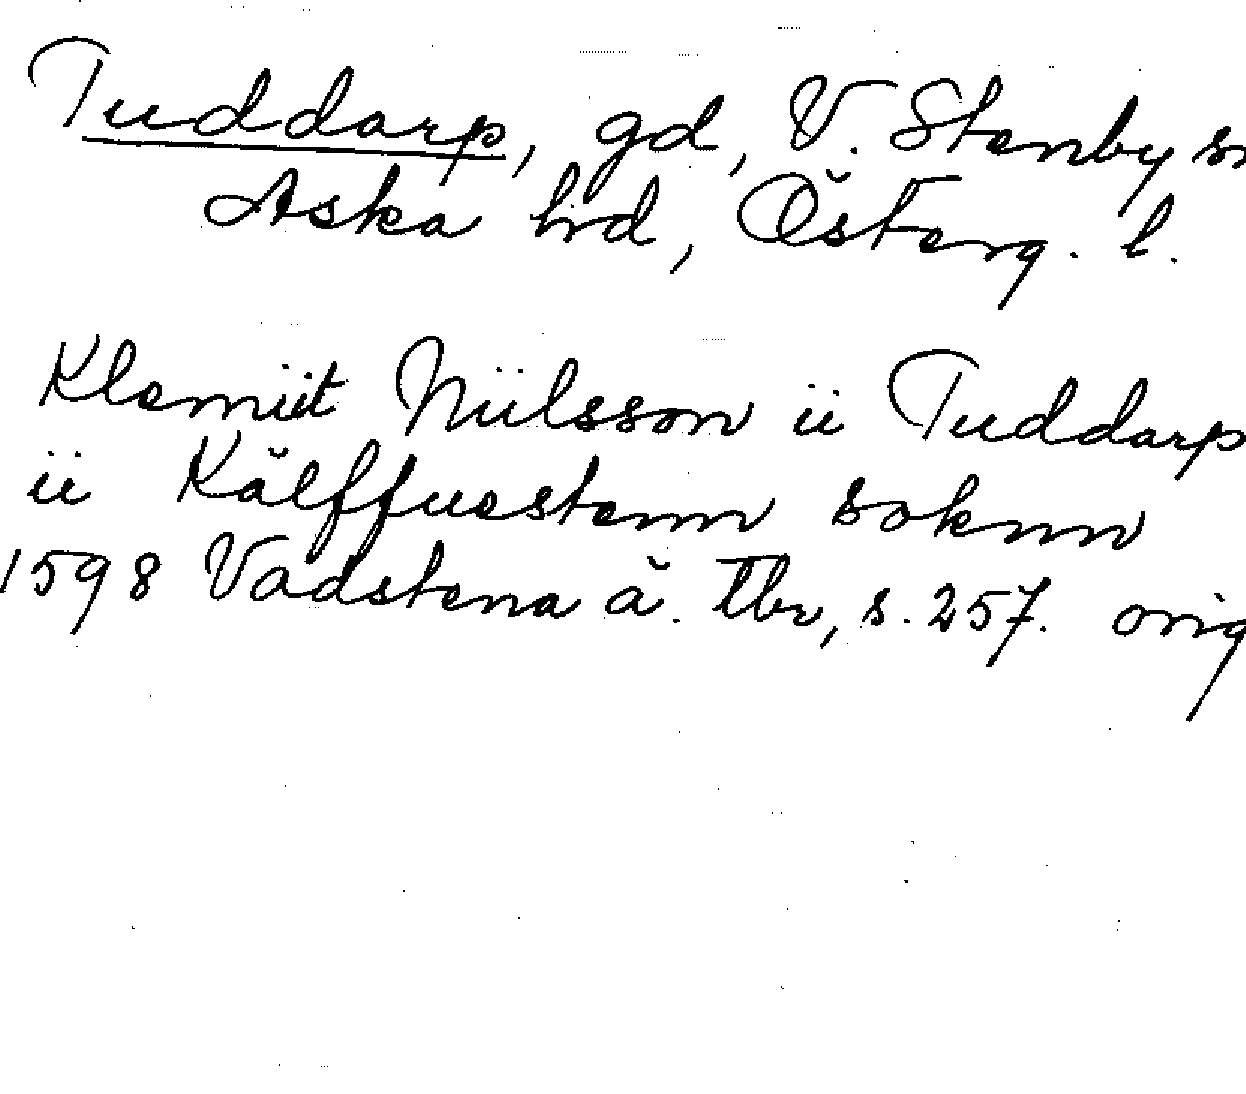 Tuddarp, gd, V. Stenby sn
Aska hd, Österg. l.
Klemiit Niilsson ii Tuddarp
ii Källffuestenn soknn
1598 Vadstena ä. tbr, s. 257. orig